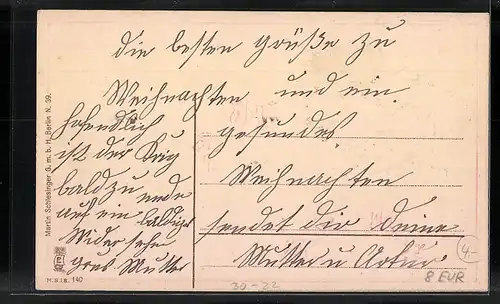 die besten Grüße zu
Weihnachten und ein
gesundes
Weihnachten
sendet dir deine
Mutter u Artur
hofendlich
ist der Krig
bald zu ende
auf ein baldiges
Wider sehn
Grus Mutter
Martin Schlesinger G. m. b. H. Berlin N. 39.
M. S. i. B. 140
30-22
4-
8 EUR